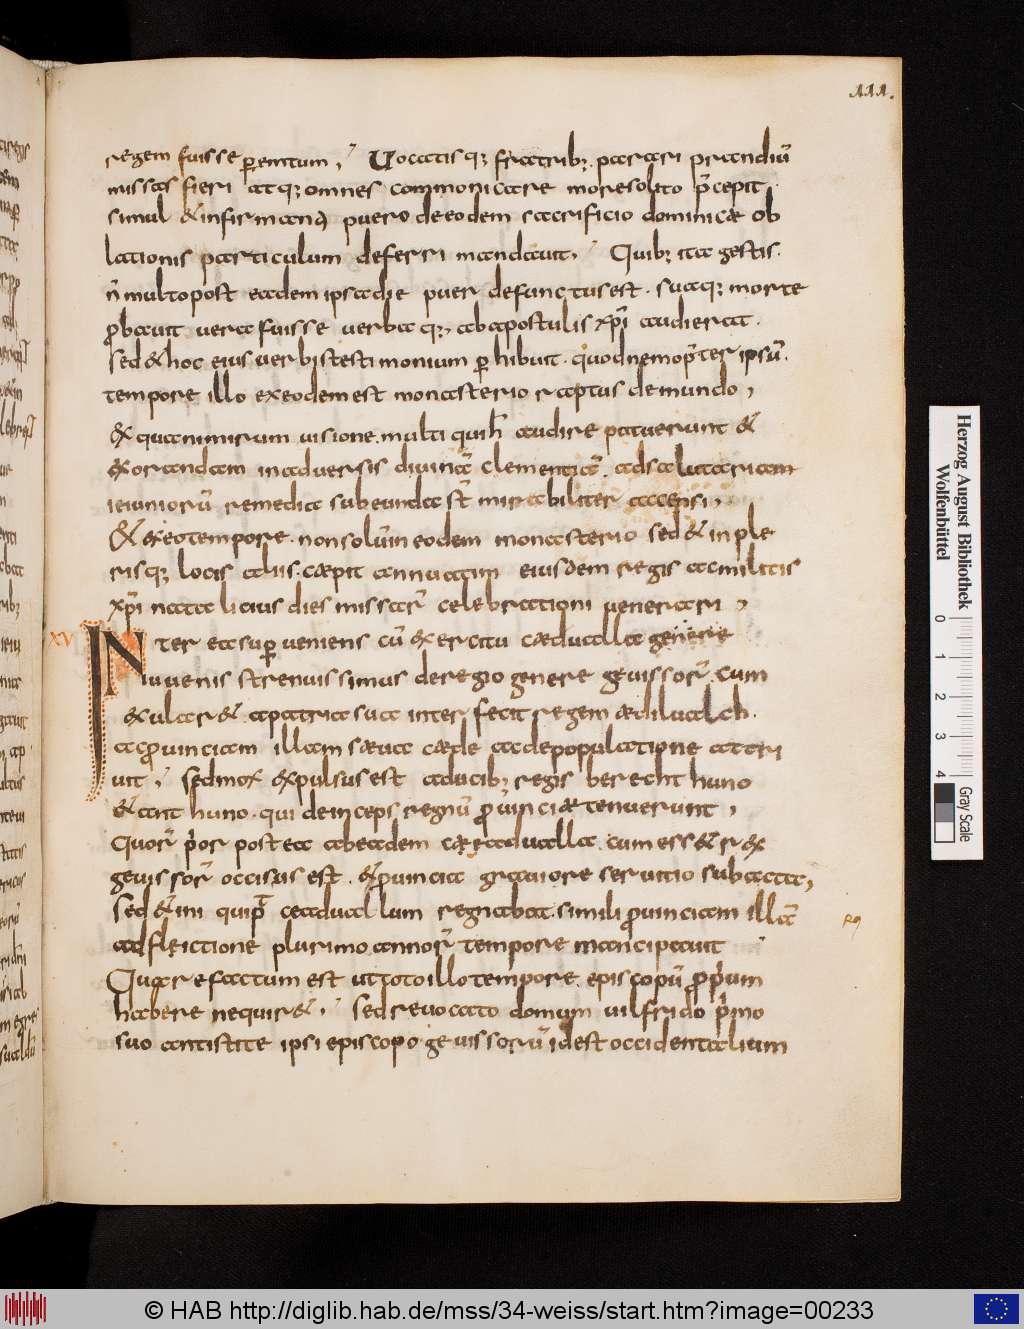 111.
regem fuisse ꝑemtum; Uocatisq; fratrib; parari prandiū
missas fieri atq; omnes commonicare moresolito p̄cepit.
simul & infirmanti puero deeodem sacrificio dominicæ ob
lationis particulum deferri mandauit; Quib; ita gestis.
ñ multopost eadem ipsadie puer defunctusest. suaq; morte
ꝓbauit uera fuisse uerba q; abapostulis xp̄i audierat.
sed & hoc eius uerbis testimonium ꝑhibuit. quod nemo p̄ter ipsū.
tempore illo exeodem est monasterio raptus de mundo;
Ex qua nimirum uisione multi quih audire patuerunt &
exorandam inaduersis diuinā clementiā. adsalutariam
ieiuniorū remedia subeunda st̄ mirabiliter accensi;
& exeotempore. nonsolūm eodem monasterio sed & in ple
risq; locis aliis. cæpit annuatim eiusdem regis acmilitis
xp̄i natalicius dies missarū celebrationi uenerari;
XV
INter ea superueniens cū exercitu cædualla genere
iuuenis strenuissimus deregio genere geuissorū. cum
exular&. apatria sua inter fecit regem ædilualch.
acꝓuinciam illam sæua cæde acdepopulatione attri
uit; sedmox expulsus est aducib; regis berechthuno
& anthuno. qui deinceps regnū ꝓuinciæ tenuerunt;
Quorū p̄or postea abeadem cæadualla. cum ess& rex
geuissorū occisus est. & ꝓuincia grauiore seruitio subacta;
sed & ini qui p̄ ceaduallum regnabat. simili ꝓuinciam illā
adflictione plurimo annorū tempore mancipauit
Quare factum est ut toto illo tempore. episcopū ꝓprium
habere nequir&; sed reuocato domum uilfrido p̄imo
suo antistite ipsi episcopo geuissorū idest occidentalium
Herzog August Bibliothek
Wolfenbüttel
0 1 2 3 4
Gray Scale
© HAB http://diglib.hab.de/mss/34-weiss/start.htm?image=00233